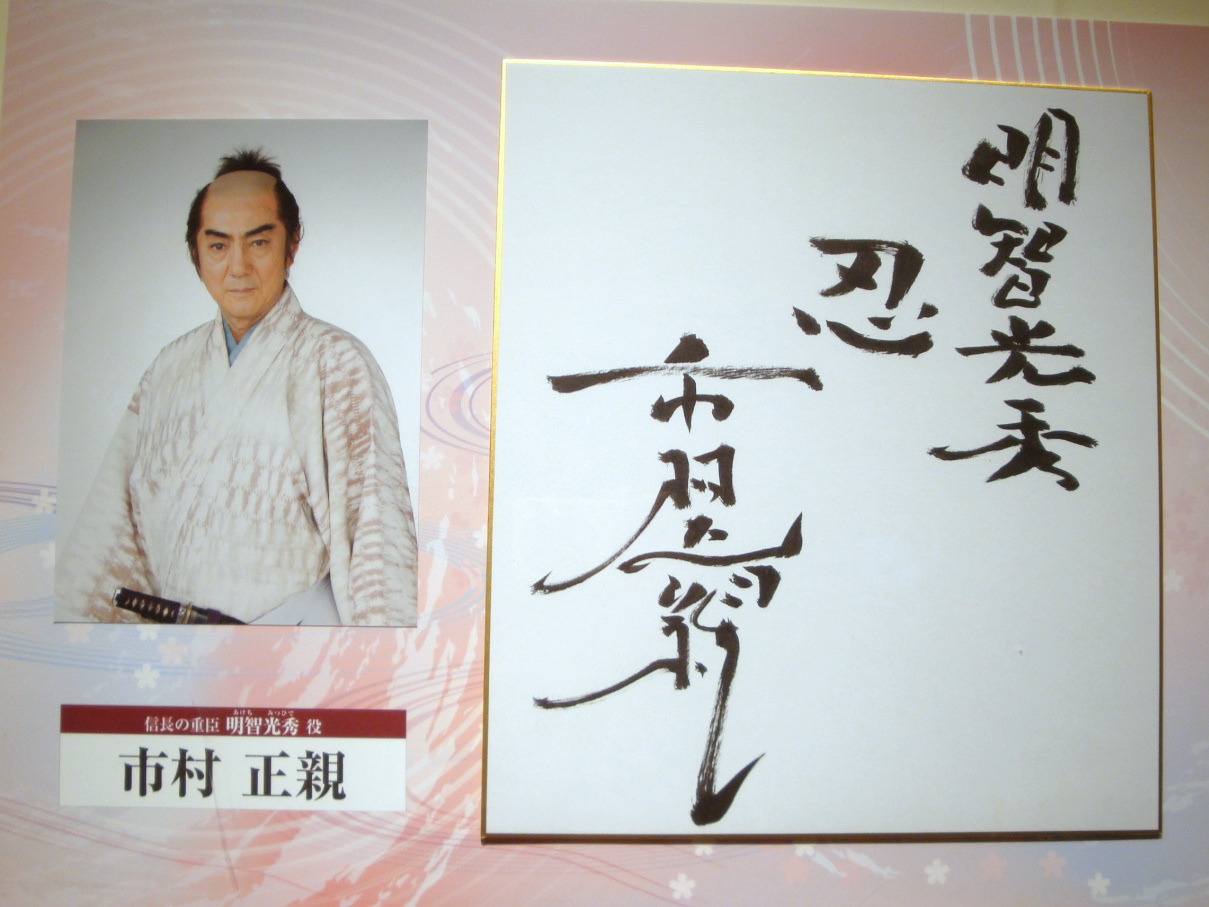 明智光秀
忍
信長の重臣 明智光秀 役
あけち みつひで
市村 正親